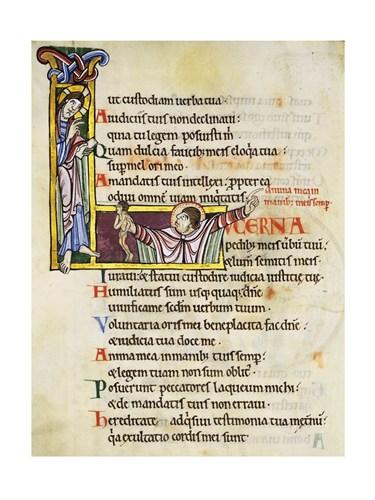 ut custodiam verba tua.
A iudiciis tuis non declinavi:
quia tu legem posuisti m̄.
Quam dulcia faucib; meis eloq̄a tua:
sup mel ori meo.
A mandatis tuis intellexi: ppterea
odivi omnē viam iniq̄tatis.
Anima mea in
manib; meis semp.
LUCERNA
pedib; meis ūbum tuū:
& lumen semitis meis.
Iuravi & statui custodire iudicia iusticię tuę.
Humiliatus sum usq; quaq; dn̄e
vivifica me scdm̄ verbum tuum.
Voluntaria oris mei beneplacita fac dn̄e:
& iudicia tua doce me.
Anima mea in manib; tuis semp:
& legem tuam non sum oblit⁹.
Posuerunt peccatores laqueum michi:
& de mandatis tuis non erravi.
Hereditate adq̄sivi testimonia tua in et̄nū:
q̄a exultatio cordis mei sunt.